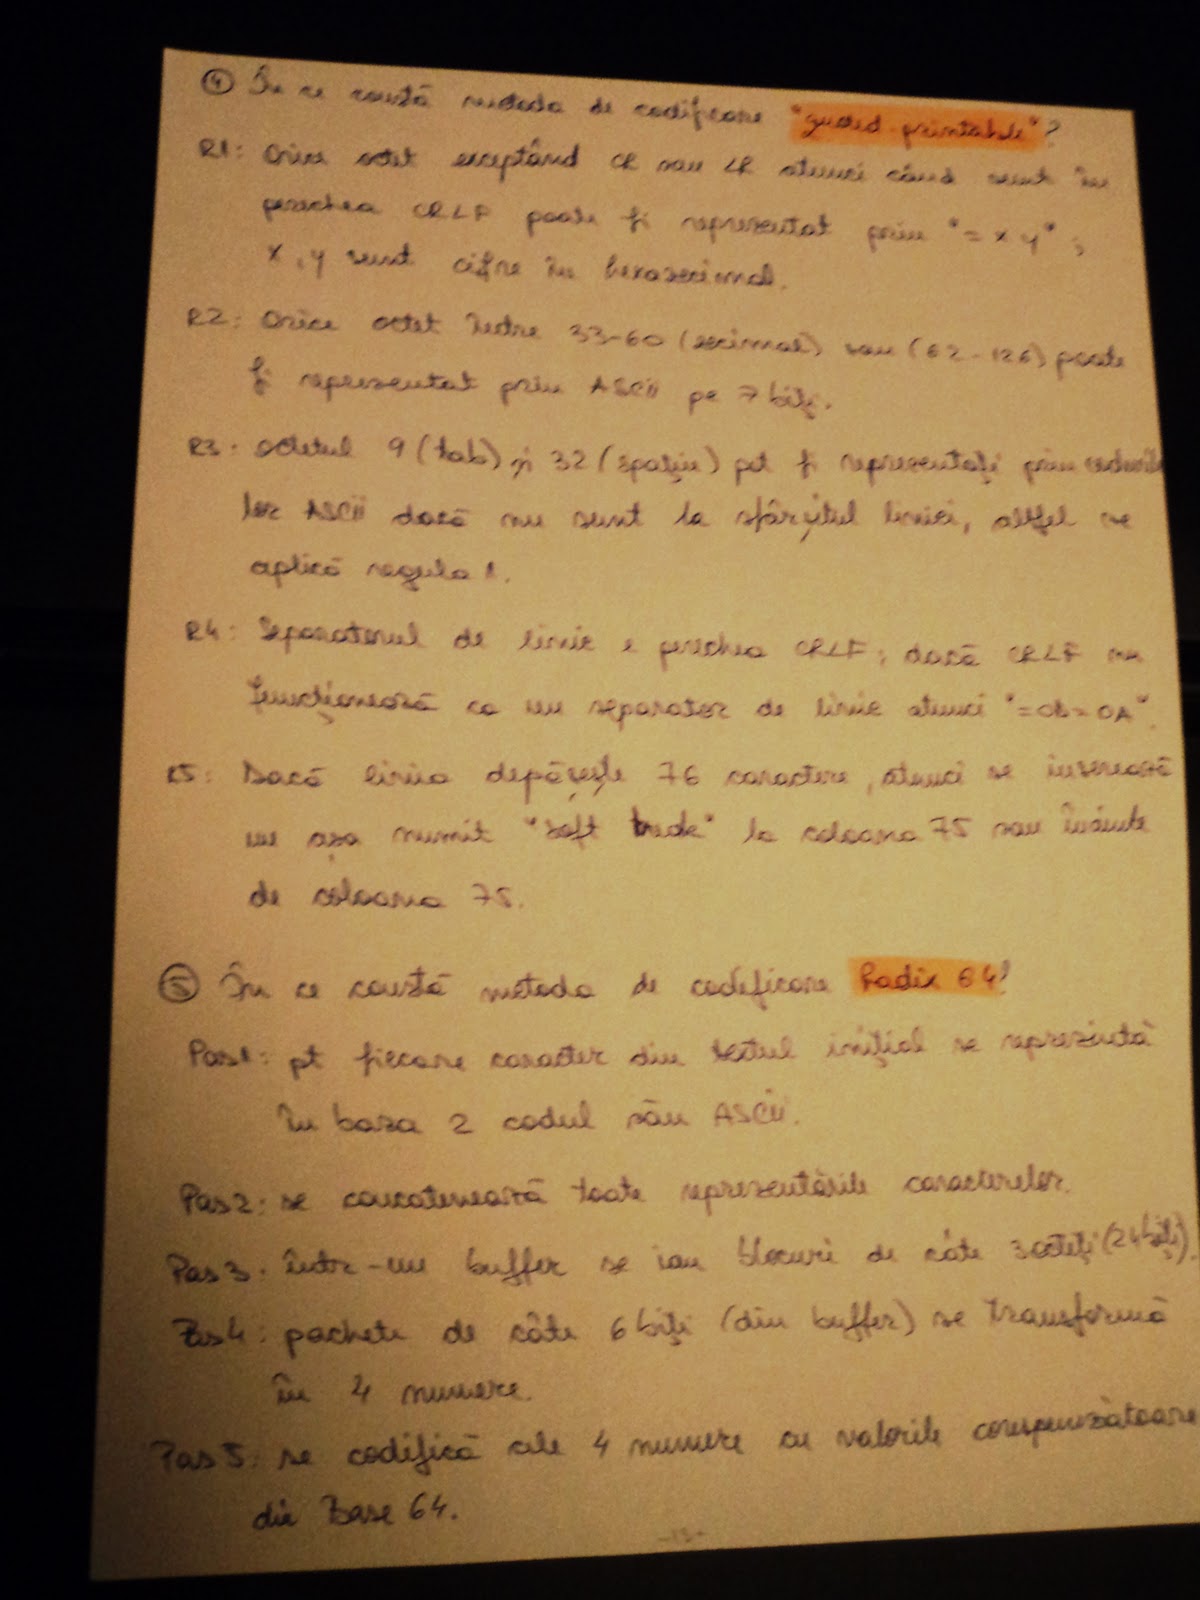 ④ În ce constă metoda de codificare "quoted-printable"?
R1: Orice octet exceptând CR sau LF atunci când sunt în
perechea CRLF poate fi reprezentat prin "= x y" ;
x, y sunt cifre în hexazecimal.
R2: Orice octet între 33-60 (zecimal) sau (62-126) poate
fi reprezentat prin ASCII pe 7 biți.
R3: Octetul 9 (tab) și 32 (spațiu) pot fi reprezentați prin codurile
lor ASCII dacă nu sunt la sfârșitul liniei, altfel se
aplică regula 1.
R4: Separatorul de linie e perechea CRLF; dacă CRLF nu
funcționează ca un separator de linie atunci "=0D=0A".
R5: Dacă linia depășește 76 caractere, atunci se inserează
un așa numit "soft" la coloana 75 sau înainte
de coloana 75.
⑤ În ce constă metoda de codificare Radix 64?
Pas1: pt fiecare caracter din textul inițial se reprezintă
în baza 2 codul său ASCII.
Pas2: se concatenează toate reprezentările caracterelor.
Pas3: într-un buffer se iau blocuri de câte 3 octeți (24 biți).
Pas4: pachete de câte 6 biți (din buffer) se transformă
în 4 numere.
Pas5: se codifică cele 4 numere cu valorile corespunzătoare
din Base 64.
-13-